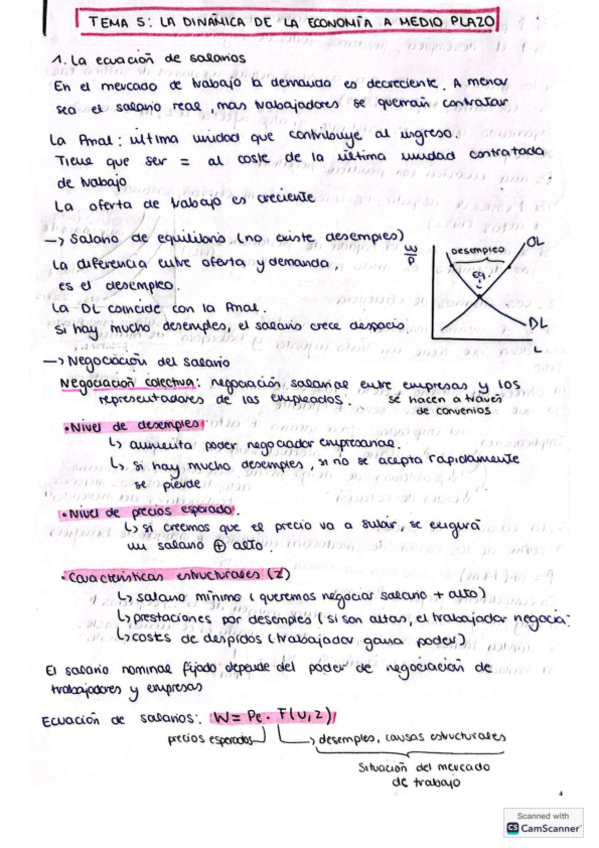 TEMA 5: LA DINÁMICA DE LA ECONOMÍA A MEDIO PLAZO
1. La ecuación de salarios
En el mercado de trabajo la demanda es decreciente. A menor
sea el salario real, mas trabajadores se querrán contratar
La Pmal: última unidad que contribuye al ingreso.
Tiene que ser = al coste de la última unidad contratada
de trabajo
La oferta de trabajo es creciente
—> Salario de equilibrio (no existe desempleo)
La diferencia entre oferta y demanda,
es el desempleo.
La DL coincide con la Pmal.
Si hay mucho desempleo, el salario crece despacio
W
P
Desempleo
OL
Eq.
DL
L
—> Negociación del salario
Negociación colectiva: negociación salarial entre empresas y los
representadores de los empleados. se hacen a través
de convenios
• Nivel de desempleo
↳ aumenta poder negociador empresarial.
↳ si hay mucho desempleo, si no se acepta rápidamente
se pierde
• Nivel de precios esperado.
↳ si creemos que el precio va a subir, se exigirá
un salario ⊕ alto.
• Características estructurales (Z)
↳ salario mínimo (queremos negociar salario + alto)
↳ prestaciones por desempleo (si son altas, el trabajador negocia
↳ costes de despidos (trabajador gana poder)
El salario nominal fijado depende del poder de negociación de
trabajadores y empresas
Ecuación de salarios: W = Pe · F(u, z)
precios esperados
desempleo, causas estructurales
Situación del mercado
de trabajo
Scanned with
CS CamScanner